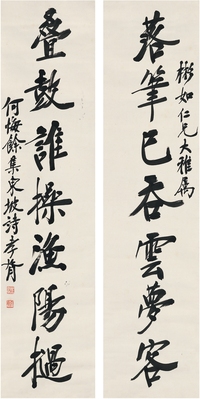 彬如仁兄大雅屬
落筆已吞雲夢客
疊鼓誰操漁陽撾
何梅餘集東坡詩孝胥